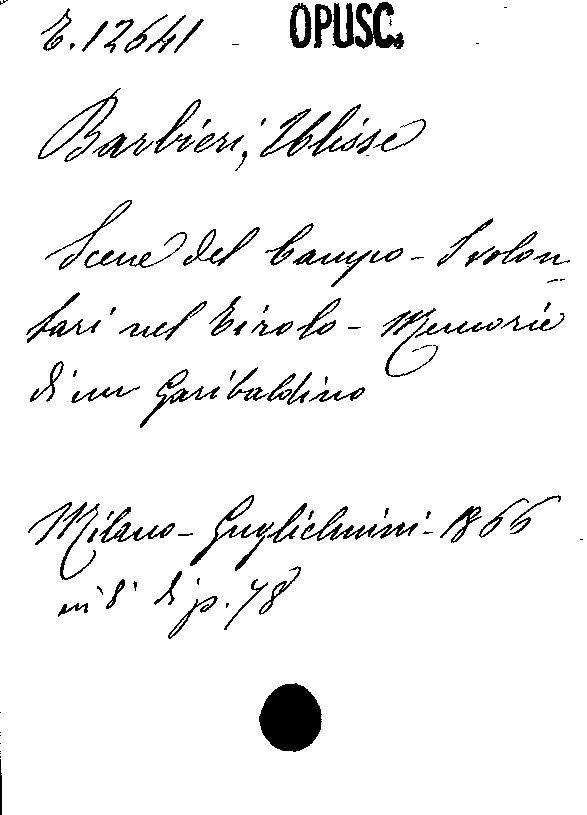 E.12641 - OPUSC.
Barbieri, Ulisse
Scene del Campo - I volon=
tari nel Tirolo - Memorie
di un Garibaldino
Milano - Guglielmini - 1866
in 8° di p. 78